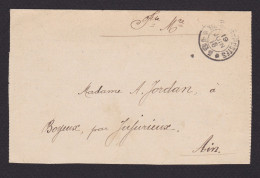 F.M.
Madame A. Jordan, à
Boyeux, par Jujurieux.
Ain.